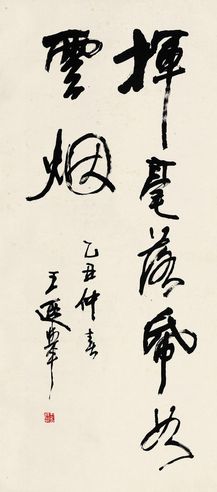 揮毫落紙如
雲烟
乙丑仲春
王遐舉